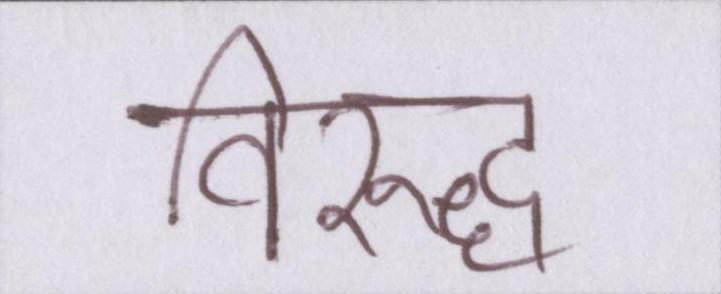 विरुद्ध